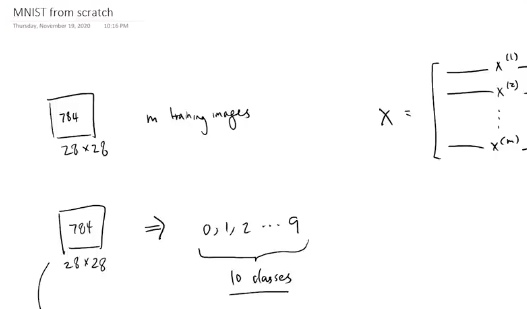 MNIST from scratch
Thursday, November 19, 2020 10:15 PM
784
28×28
m training images
X =
x^(1)
x^(2)
⋮
x^(m)
784
28×28
⇒ 0, 1, 2 ⋯ 9
10 classes